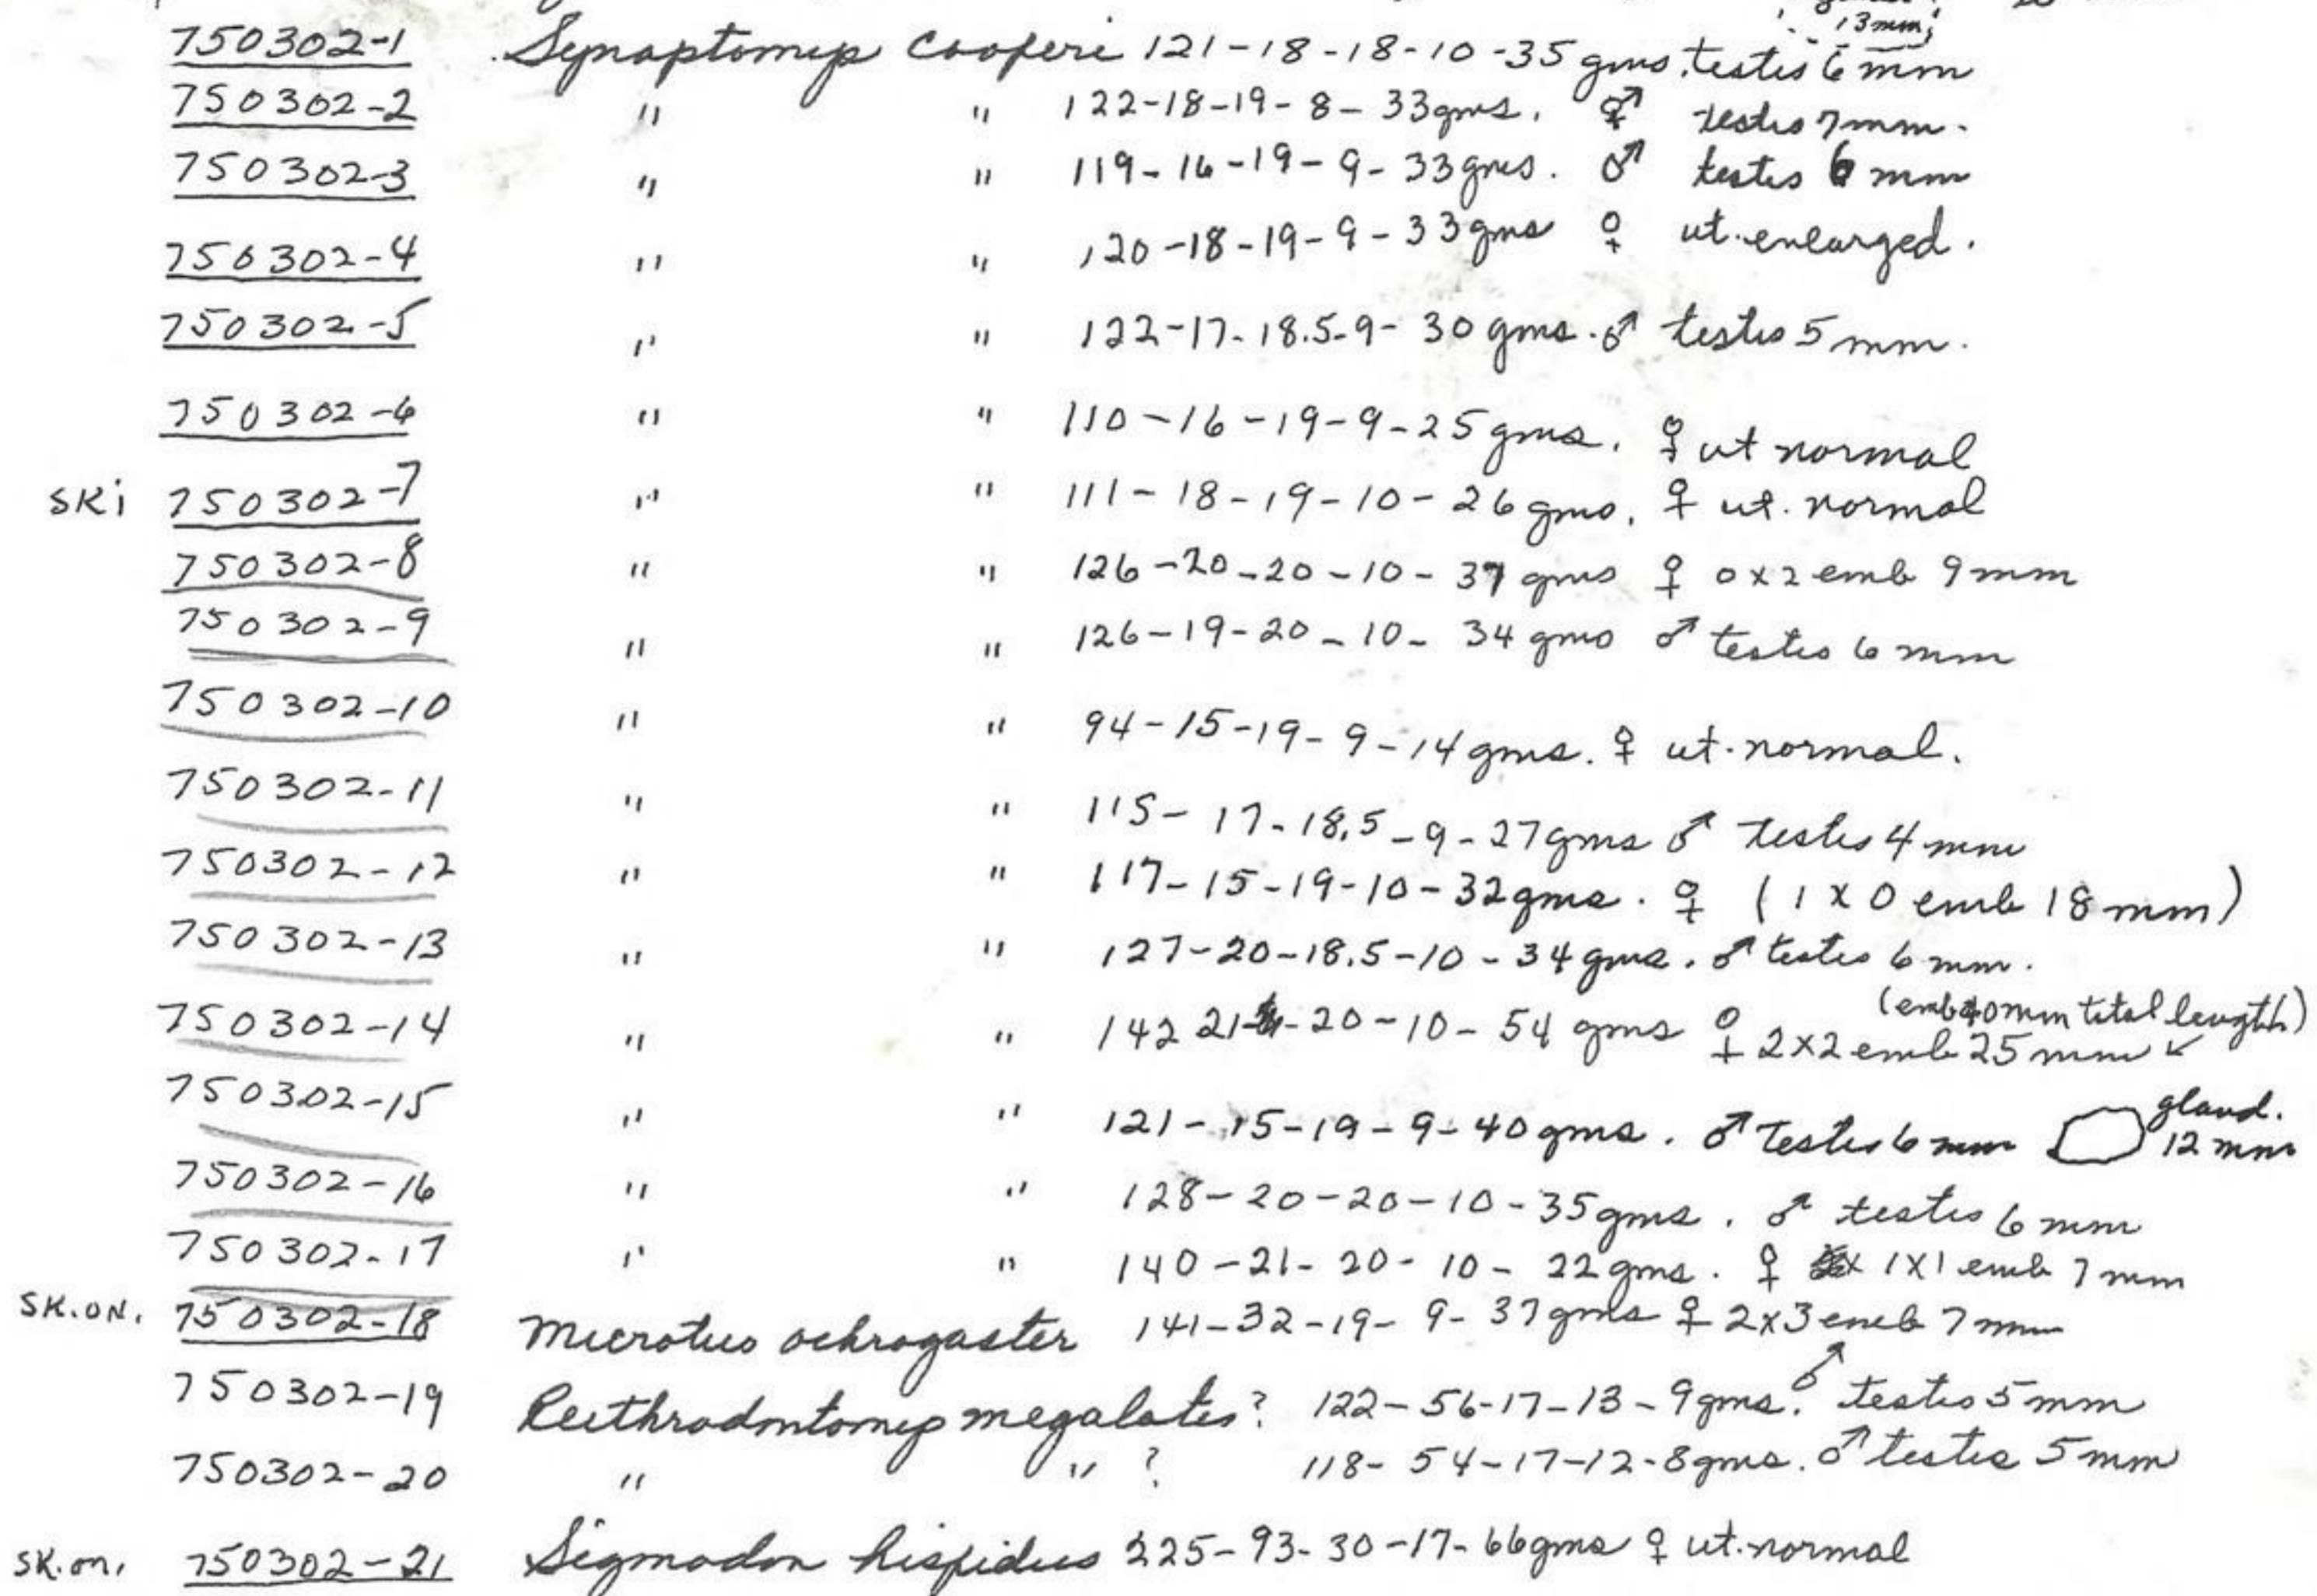 13mm;
750302-1 Synaptomys cooperi 121-18-18-10-35 gms. testis 6 mm
750302-2 " " 122-18-19-8-33gms. ♂ testis 7mm.
750302-3 " " 119-16-19-9-33gms. ♂ testis 6 mm
750302-4 " " 120-18-19-9-33gms ♀ ut. enlarged.
750302-5 " " 122-17-18.5-9-30 gms. ♂ testis 5 mm.
750302-6 " " 110-16-19-9-25gms. ♀ ut normal
SKi 750302-7 " " 111-18-19-10-26gms. ♀ ut. normal
750302-8 " " 126-20-20-10-37 gms ♀ 0x2 emb 9mm
750302-9 " " 126-19-20-10-34 gms ♂ testis 6 mm
750302-10 " " 94-15-19-9-14gms. ♀ ut. normal.
750302-11 " " 115-17-18.5-9-27gms ♂ testis 4 mm
750302-12 " " 117-15-19-10-32gms. ♀ (1 x 0 emb 18 mm)
750302-13 " " 127-20-18.5-10-34gms. ♂ testis 6 mm.
(emb 40mm total length)
750302-14 " " 142 21-20-10-54 gms ♀ 2x2 emb 25 mm ↙
750302-15 " " 121-15-19-9-40gms. ♂ testis 6 mm gland. 12 mm
750302-16 " " 128-20-20-10-35gms. ♂ testis 6 mm
750302-17 " " 140-21-20-10-22gms. ♀ 1x1 emb 7 mm
SK.ON. 750302-18 Microtus ochrogaster 141-32-19-9-37gms ♀ 2x3 emb 7 mm
750302-19 Reithrodontomys megalotis? 122-56-17-13-9gms. ♂ testis 5 mm
750302-20 " " ? 118-54-17-12-8gms. ♂ testis 5 mm
SK.on. 750302-21 Sigmodon hispidus 225-93-30-17-66gms ♀ ut. normal